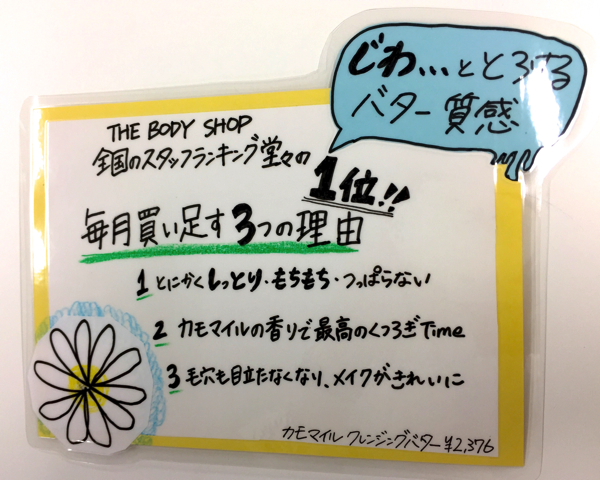 じわ…ととろける
バター質感
THE BODY SHOP
全国のスタッフランキング堂々の
1位!!
毎月買い足す3つの理由
1 とにかくしっとり・もちもち・つっぱらない
2 カモマイルの香りで最高のくつろぎTime
3 毛穴も目立たなくなり、メイクがきれいに
カモマイル クレンジングバター ¥2,376